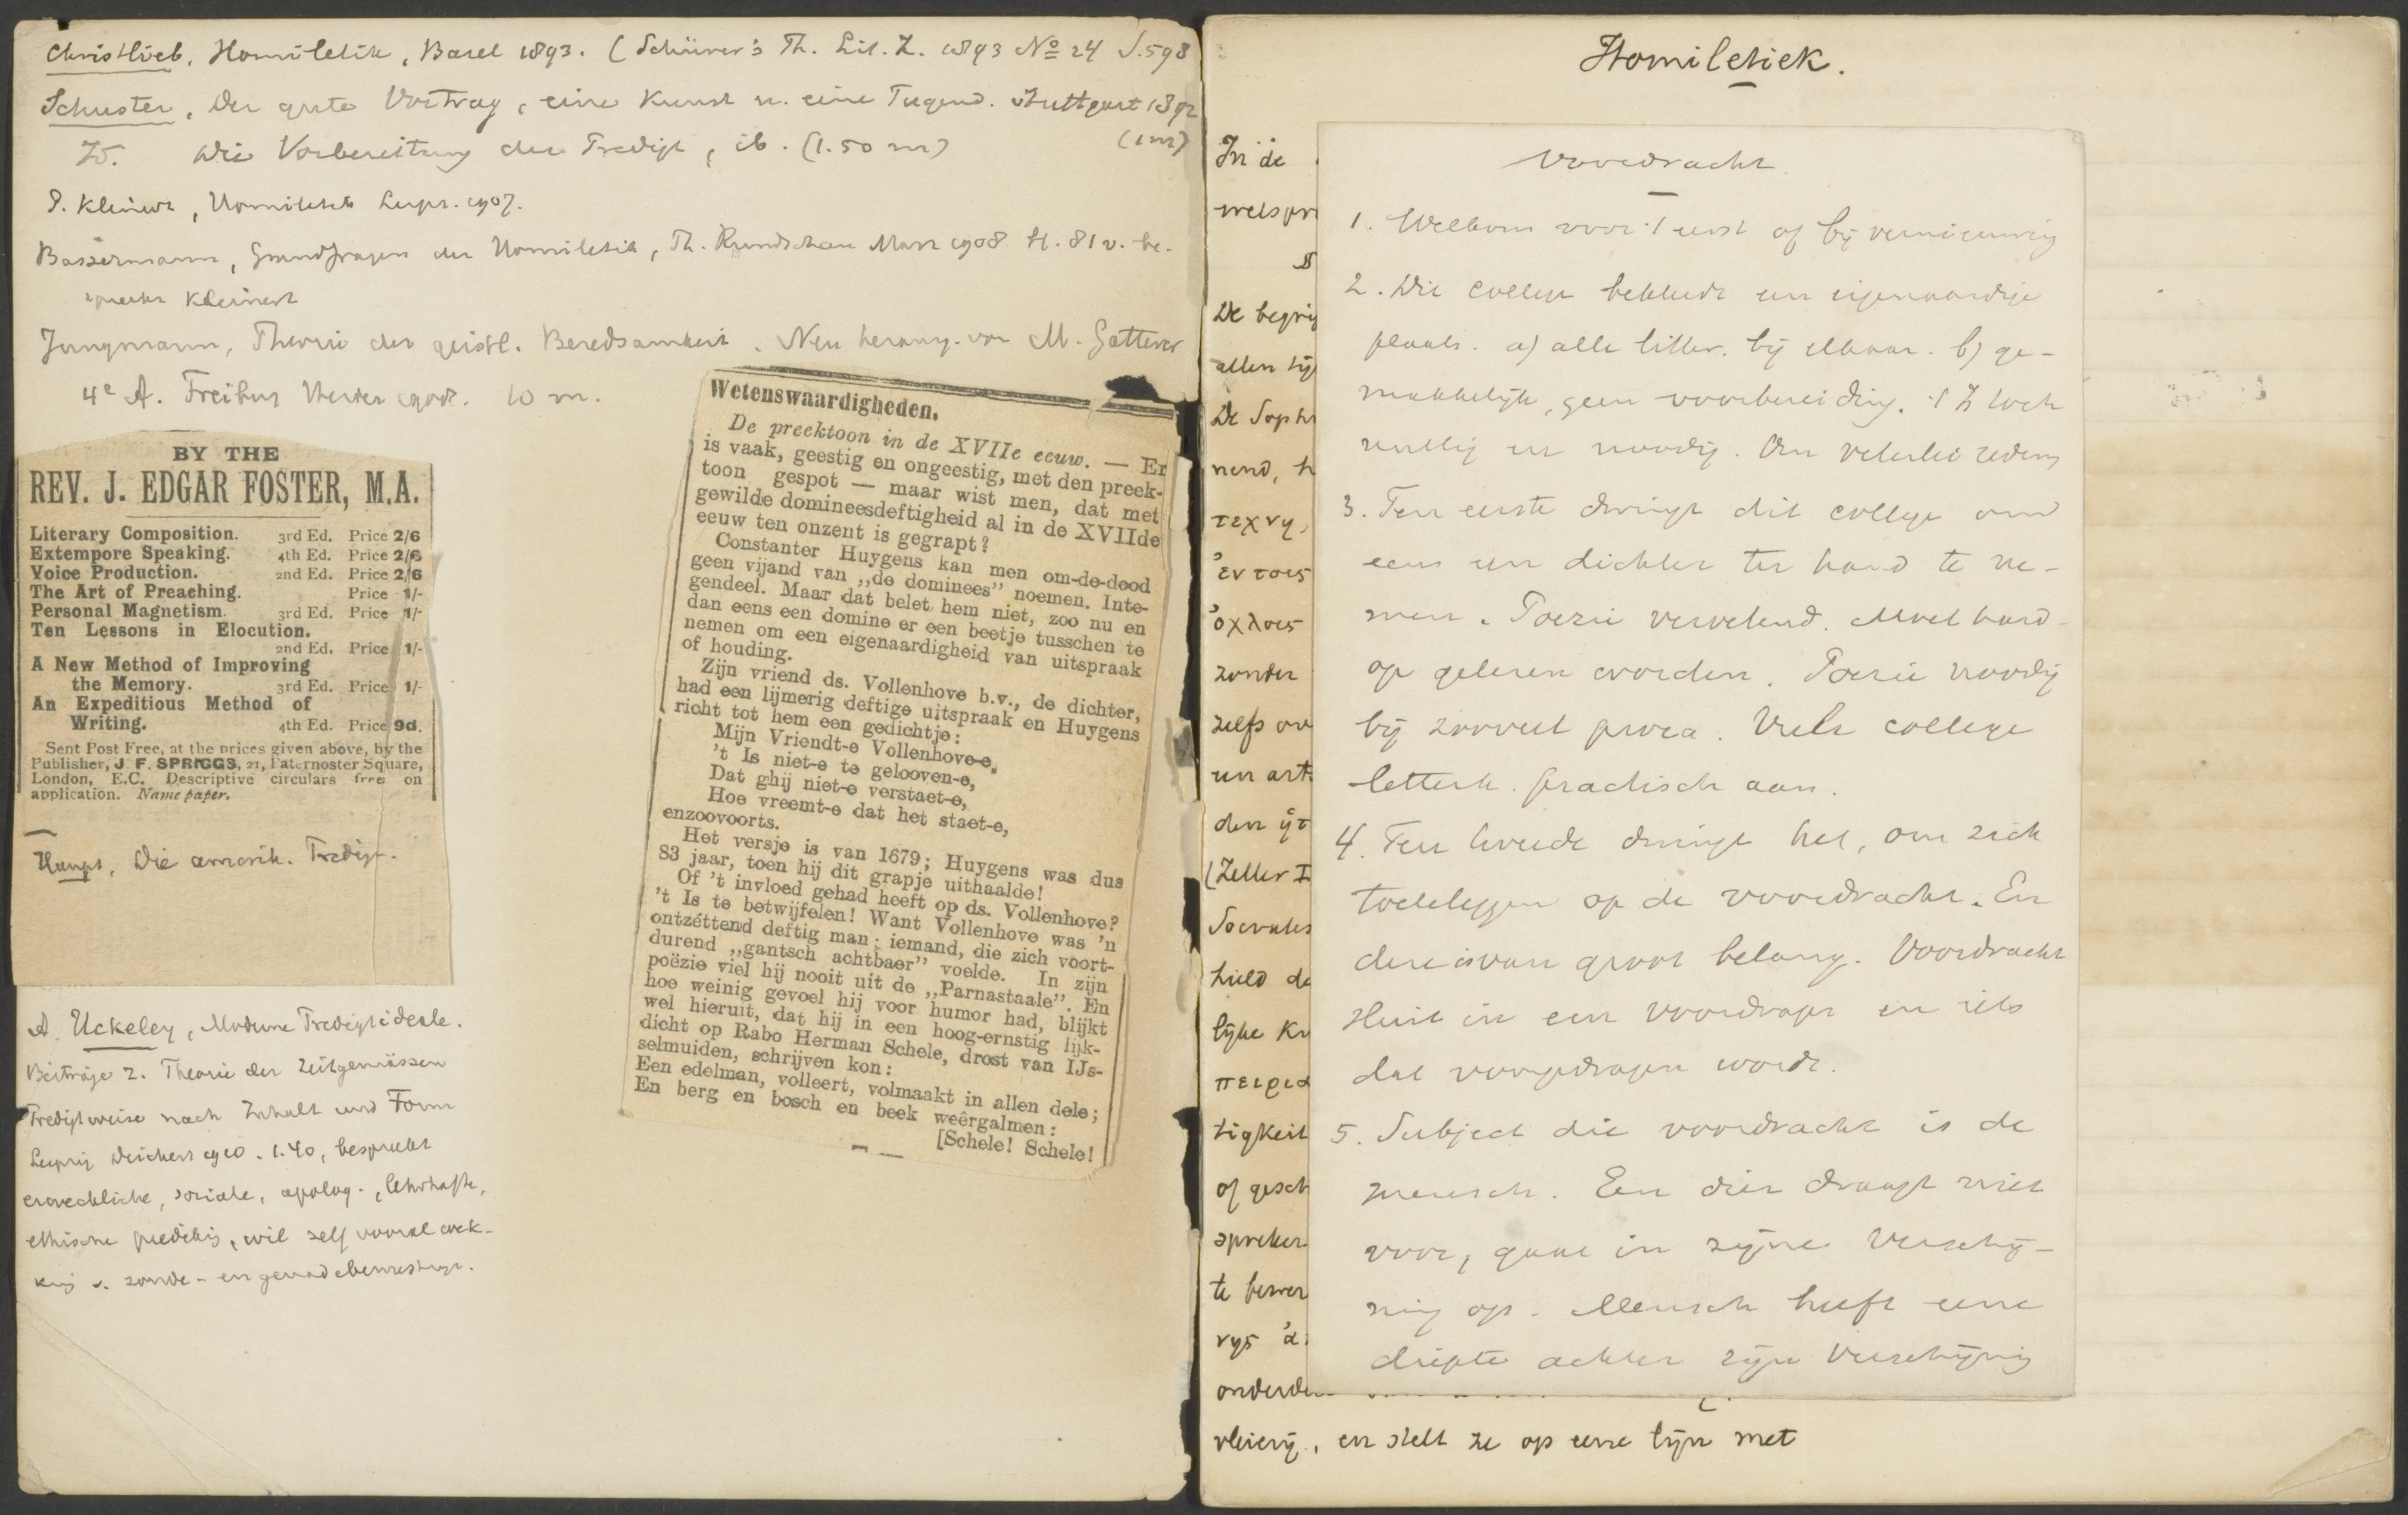 Christlieb, Homiletik, Basel 1893. (Schürer's Th. Lit. Z. 1893 No 24 S. 598
Schuster, Der gute Vortrag, eine Kunst u. eine Tugend. Stuttgart 1892
(1 m)
Id. Die Vorbereitung der Predigt, ib. (1.50 m)
P. Kleinert, Homiletik Leipz. 1907.
Bassermann, Grundfragen der Homiletik, Th. Rundschau März 1908 H. 81 v. be-
spreekt Kleinert
Jungmann, Theorie der geistl. Beredsamkeit. Neu herausg. von M. Gatterer
4e A. Freiburg Herder 1908. 10 m.
BY THE
REV. J. EDGAR FOSTER, M.A.
Literary Composition. 3rd Ed. Price 2/6
Extempore Speaking. 4th Ed. Price 2/6
Voice Production. 2nd Ed. Price 2/6
The Art of Preaching. Price 1/-
Personal Magnetism. 3rd Ed. Price 1/-
Ten Lessons in Elocution.
2nd Ed. Price 1/-
A New Method of Improving
the Memory. 3rd Ed. Price 1/-
An Expeditious Method of
Writing. 4th Ed. Price 9d.
Sent Post Free, at the prices given above, by the
Publisher, J. F. SPRIGGS, 21, Paternoster Square,
London, E.C. Descriptive circulars free on
application. Name paper.
Haupt, Die amerik. Predigt.
A. Uckeley, Moderne Predigtideale.
Beiträge z. Theorie der zeitgemässen
Predigtweise nach Inhalt und Form
Leipzig Deichert 1910. 1.40, bespreekt
erweckliche, sociale, apolog., lehrhafte,
ethische prediking, wil zelf vooral wek-
king v. zonde- en genadebewustzijn.
Wetenswaardigheden.
De preektoon in de XVIIe eeuw. — Er
is vaak, geestig en ongeestig, met den preek-
toon gespot — maar wist men, dat met
gewilde domineesdeftigheid al in de XVIIde
eeuw ten onzent is gegrapt?
Constanter Huygens kan men om-de-dood
geen vijand van „de dominees” noemen. Inte-
gendeel. Maar dat belet hem niet, zoo nu en
dan eens een domine er een beetje tusschen te
nemen om een eigenaardigheid van uitspraak
of houding.
Zijn vriend ds. Vollenhove b.v., de dichter,
had een lijmerig deftige uitspraak en Huygens
richt tot hem een gedichtje:
Mijn Vriendt-e Vollenhove-e,
't Is niet-e te gelooven-e,
Dat ghij niet-e verstaet-e,
Hoe vreemt-e dat het staet-e,
enzoovoorts.
Het versje is van 1679; Huygens was dus
83 jaar, toen hij dit grapje uithaalde!
Of 't invloed gehad heeft op ds. Vollenhove?
't Is te betwijfelen! Want Vollenhove was 'n
ontzéttend deftig man; iemand, die zich voort-
durend „gantsch achtbaer” voelde. In zijn
poëzie viel hij nooit uit de „Parnastaale”. En
hoe weinig gevoel hij voor humor had, blijkt
wel hieruit, dat hij in een hoog-ernstig lijk-
dicht op Rabo Herman Schele, drost van IJs-
selmuiden, schrijven kon:
Een edelman, volleert, volmaakt in allen dele;
En berg en bosch en beek weêrgalmen:
[Schele! Schele!
Homiletiek.
In de
welspr
De begri
allen tij
De Soph
nend, h
τεχνη,
ἐν τοις
ὀχλοις
zonder
zelfs ov
een art
den
(Zeller I
Socrates
hield de
lijke Ku
πειρια
tigkeit
of gesch
spreker
te bewer
onderde
vleierij, en stelt ze op eene lijn met
Voordracht
1. Welkom voor 't eerst of bij vernieuwing
2. Dit college bekleedt een eigenaardige
plaats. a) alle litter. bij elkaar. b) ge-
makkelijk, geen voorbereiding. 't Is toch
nuttig en noodig. Om velerlei redens
3. Ten eerste dwingt dit college om
eens een dichter ter hand te ne-
men. Poezie vervelend. Moet hard-
op gelezen worden. Poezie noodig
bij zooveel proza. Vult college
letterk. practisch aan.
4. Ten tweede dwingt het, om zich
toeteleggen op de voordracht. En
deze is van groot belang. Voordracht
sluit in een voordrager en iets
dat voorgedragen wordt.
5. Subject die voordracht is de
mensch. Een dier draagt niet
voor, gaat in zijne verschij-
ning op. Mensch heeft eene
diepte achter zijn verschijning